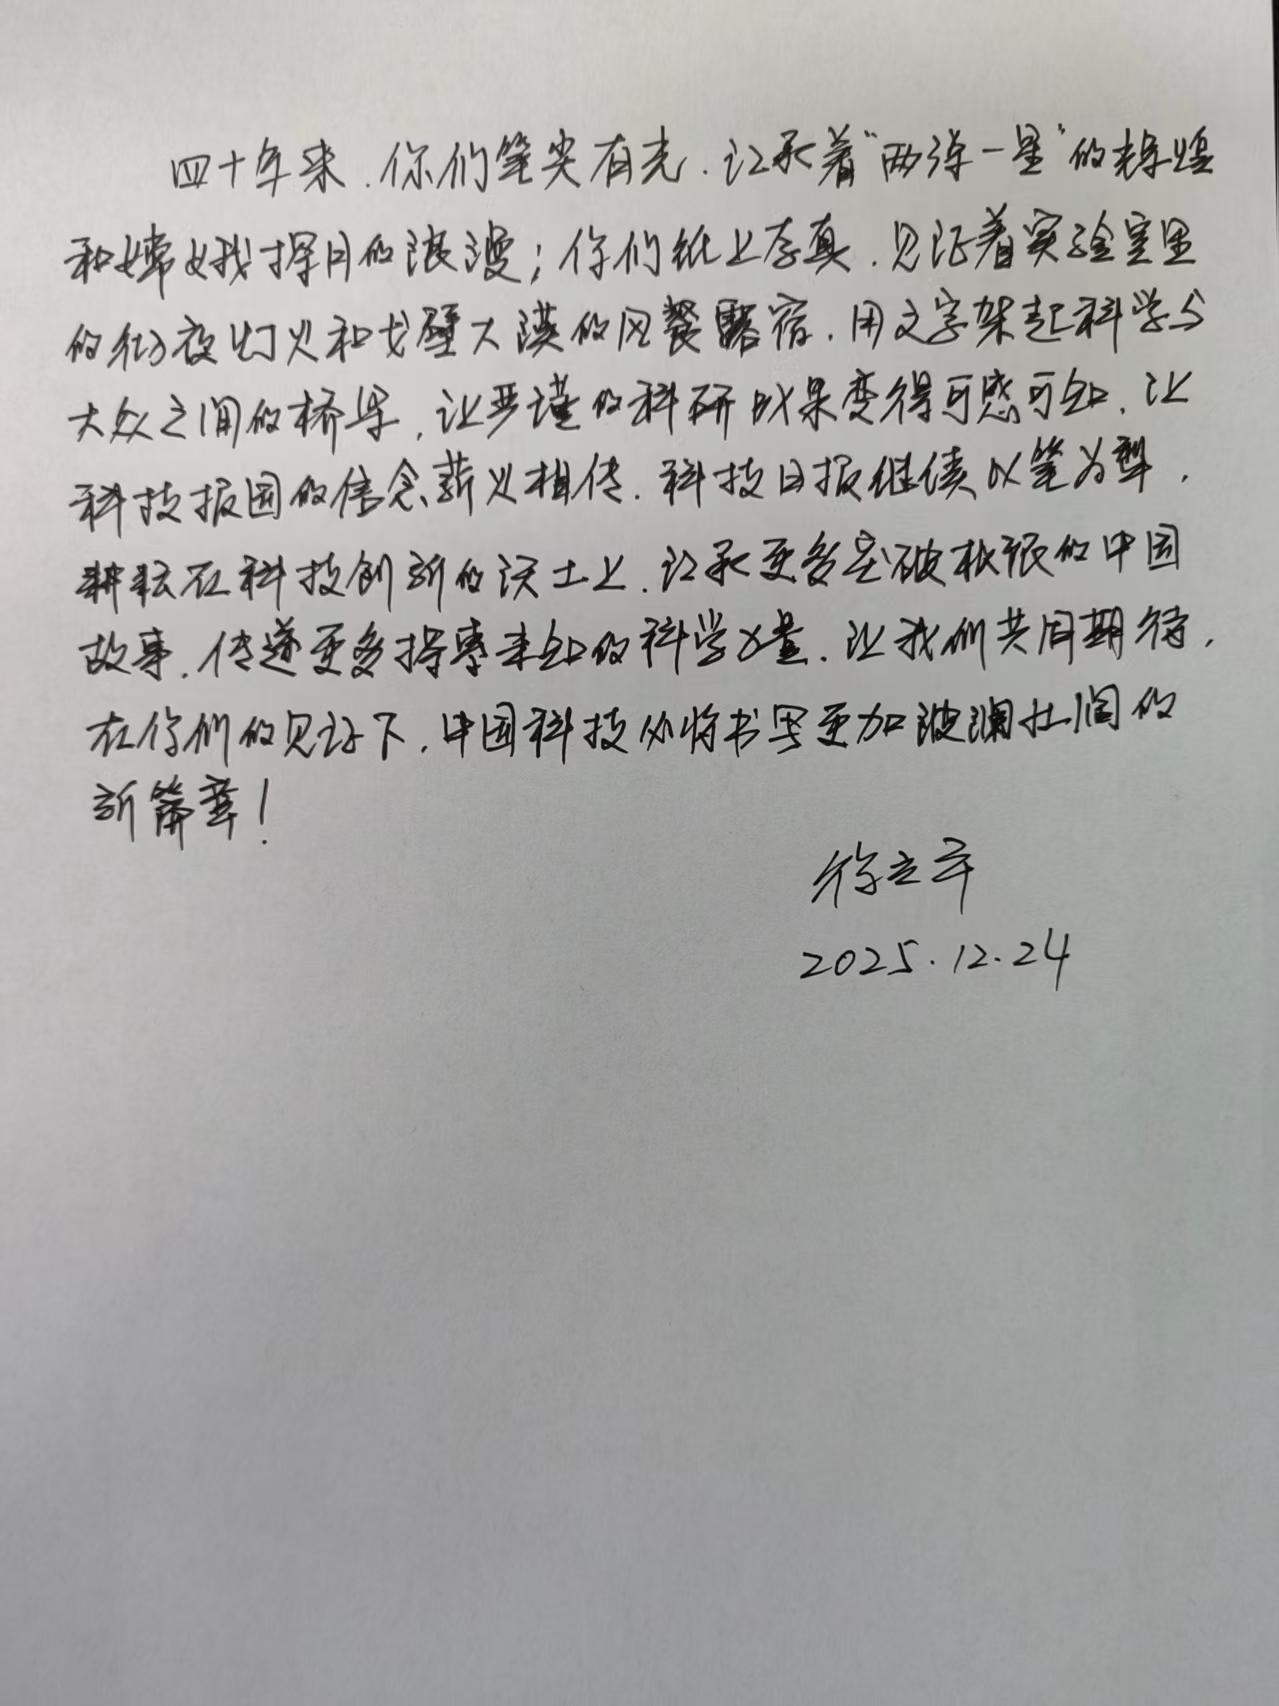 四十年来,你们笔尖有光,记录着“两弹一星”的辉煌
和嫦娥探月的浪漫;你们纸上存真,见证着实验室里
的彻夜灯火和戈壁大漠的风餐露宿,用文字架起科学与
大众之间的桥梁,让严谨的科研成果变得可感可知,让
科技报国的信念薪火相传.科技日报继续以笔为犁,
耕耘在科技创新的沃土上,记录更多突破极限的中国
故事,传递更多探索未知的科学力量.让我们共同期待,
在你们的见证下,中国科技必将书写更加波澜壮阔的
新篇章!
徐立平
2025.12.24